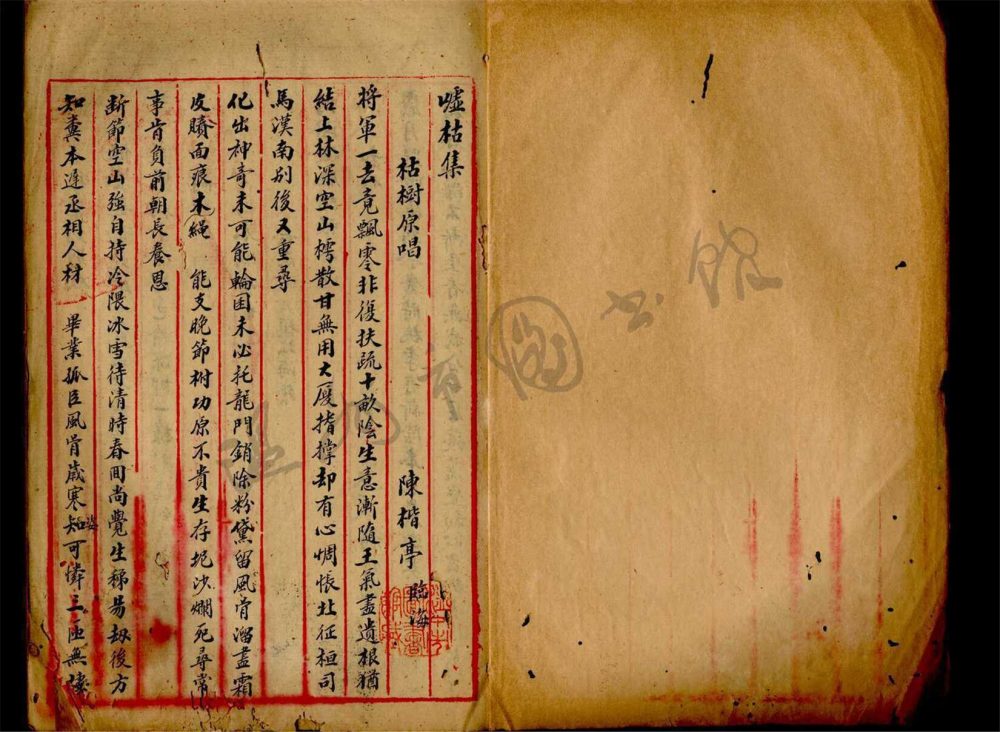 嘘枯集
枯樹原唱 陳楷亭 臨海
将軍一去竟飄零非復扶疏十畝陰生意漸隨王氣盡遺根猶
結上林深空山樗散甘無用大厦搘撑却有心惆悵北征桓司
馬漢南别後又重尋
化出神奇未可能輪囷未必托龍門銷除粉黛留風骨溜盡霜
皮賸面痕木繩 能支晚節樹功原不貴生存圯沙爛死尋常
事肯負前朝長養恩
断節空山强自持冷隈冰雪待清時春囬尚覺生稊易劫後方
知糞本遲丞相人材 畢業孤臣風骨歲寒知姿可憐三匝無棲
館 書 圖